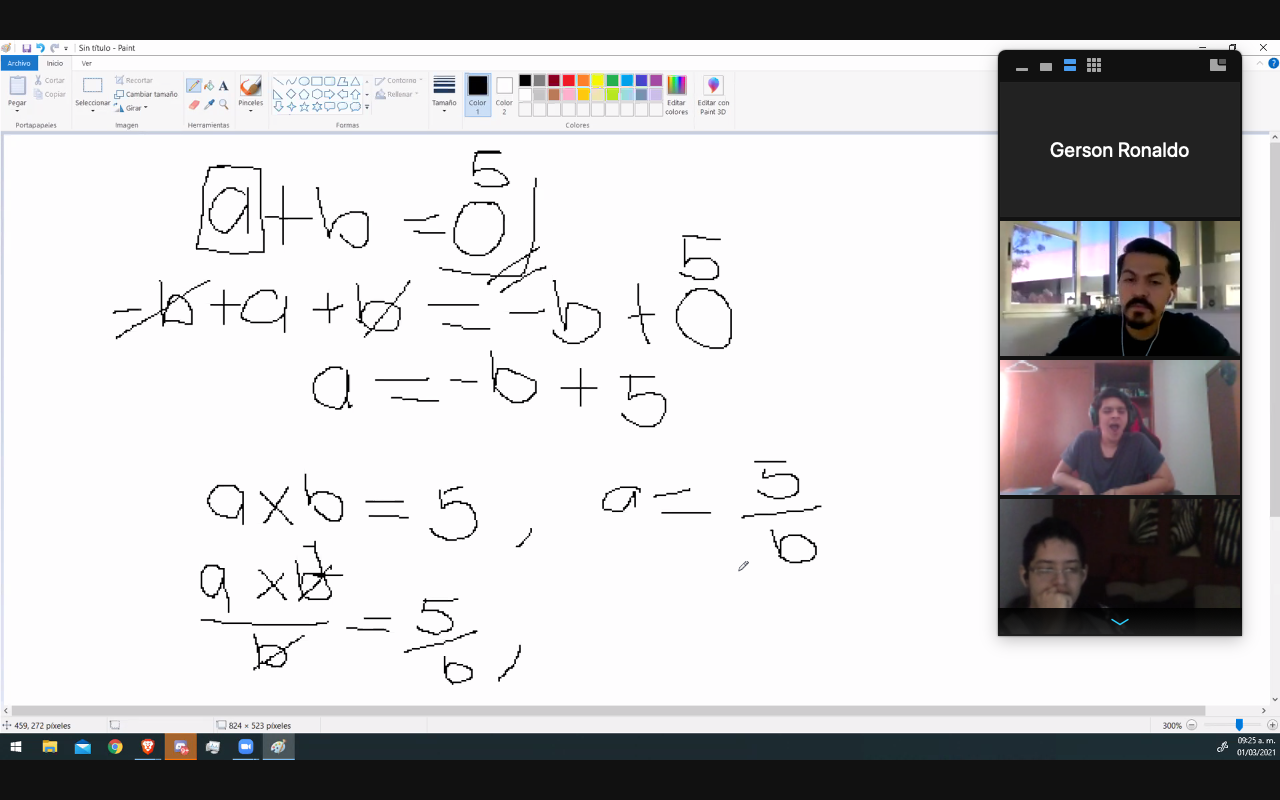 Sin título - Paint
Archivo Inicio Ver
Pegar
Cortar
Copiar
Portapapeles
Seleccionar
Recortar
Cambiar tamaño
Girar
Imagen
A
Herramientas
Pinceles
Contorno
Rellenar
Formas
Tamaño
Color 1
Color 2
Editar colores
Editar con Paint 3D
Colores
Gerson Ronaldo
5
a + b = 0
5
-b + a + b = -b + 0
a = -b + 5
a x b = 5 , a = 5/b
1
a x b
b
= 5/b ,
459, 272 píxeles
824 × 523 píxeles
300%
09:25 a. m.
01/03/2021